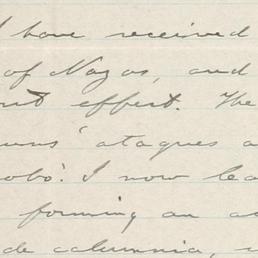 I have received
of Nazas, and
effect. The
ataques a
lobo'. I now
forming an
de calumnia,